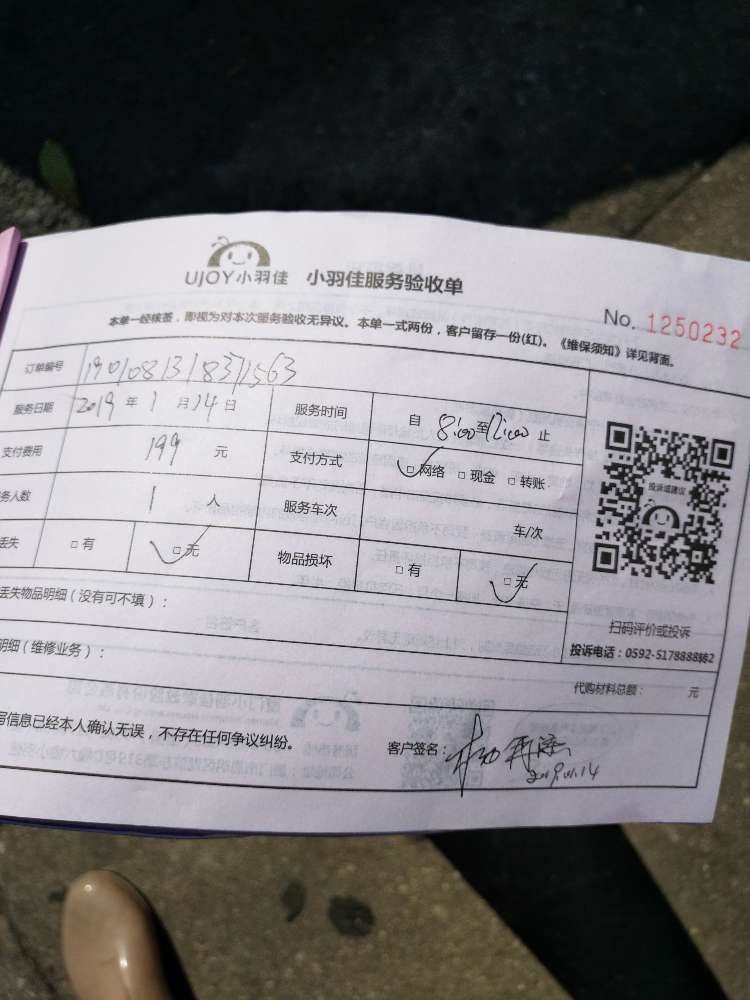 UJOY小羽佳 小羽佳服务验收单
No. 1250232
本单一经核签，即视为对本次服务验收无异议。本单一式两份，客户留存一份(红)。《维保须知》详见背面。
订单编号 190108131831563
服务日期 2019 年 1 月 14 日 服务时间 自 8:00 至 12:00 止
支付费用 199 元 支付方式 ✓□网络 □现金 □转账
务人数 1 人 服务车次 车/次
投诉或建议
丢失 □有 ✓□无 物品损坏 □有 ✓□无
丢失物品明细（没有可不填）：
扫码评价或投诉
明细（维修业务）：
投诉电话：0592-5178888转2
代购材料总额： 元
写信息已经本人确认无误，不存在任何争议纠纷。
客户签名：
2019.01.14